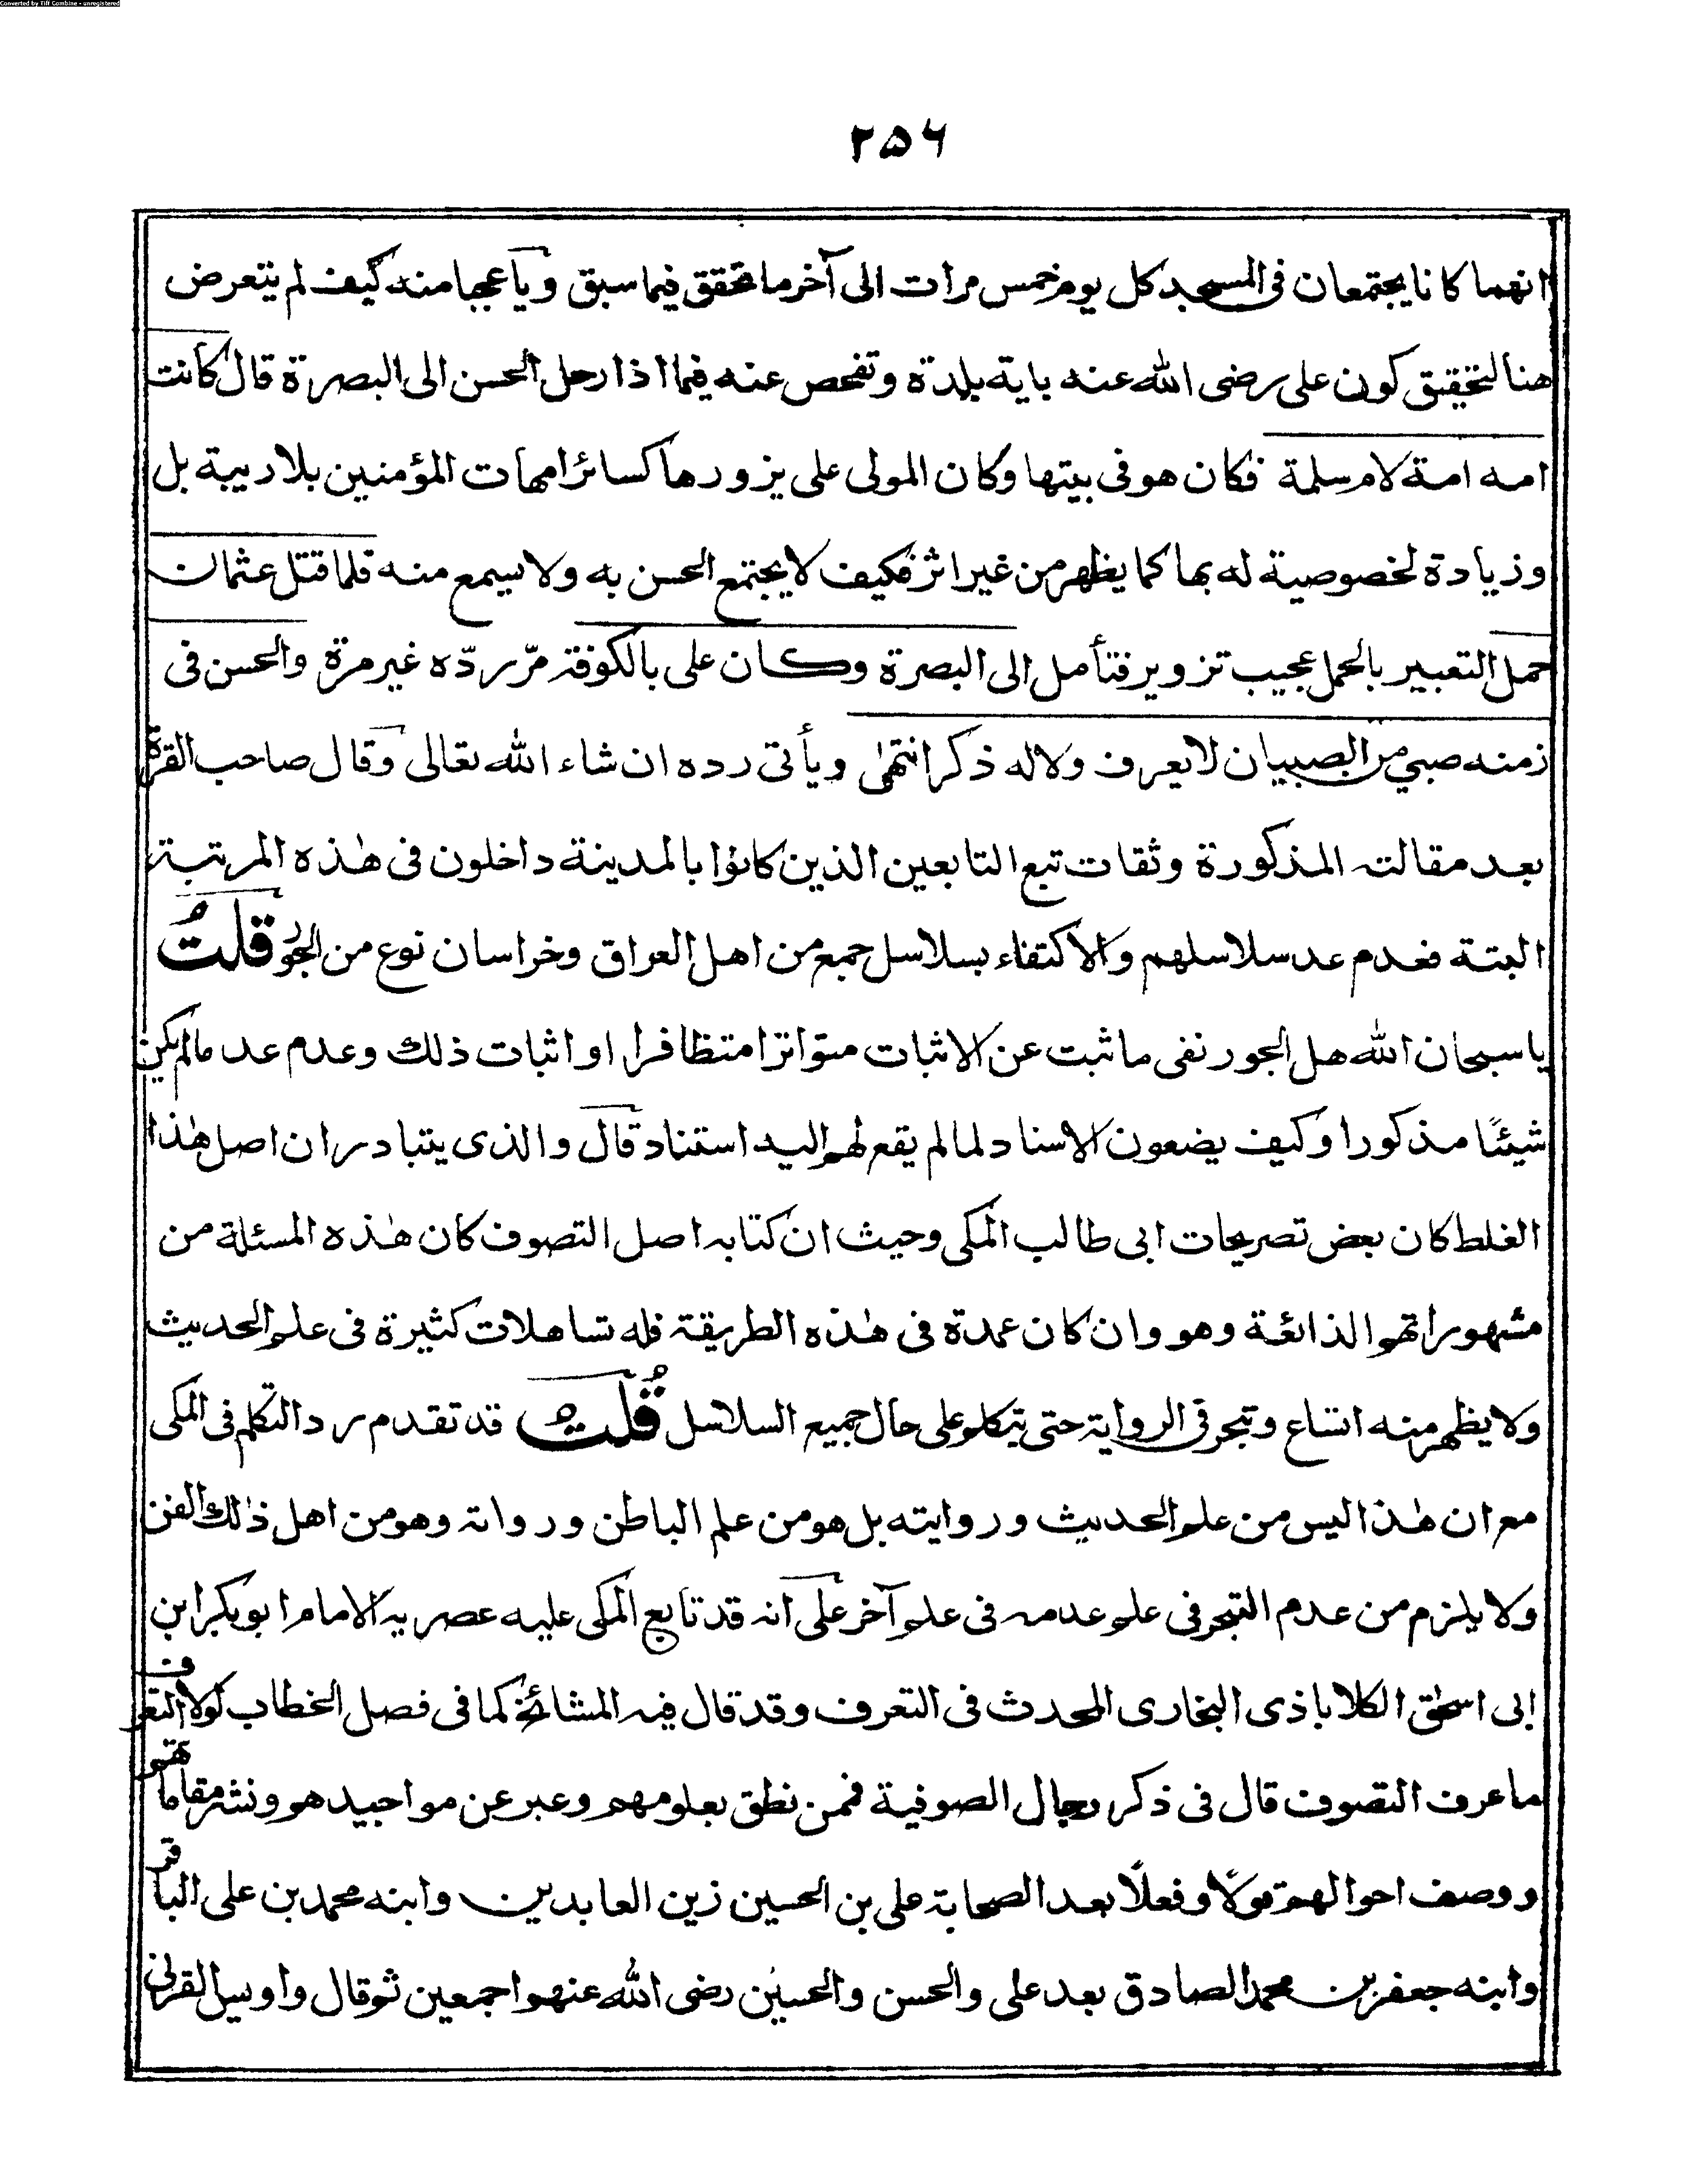 Converted by Tiff Combine - unregistered
٢٥٦
انهما كانا يجتمعان فى المسجد كل يوم خمس مرات الى آخر ما تحقق فيما سبق ويا عجبا منه كيف لم يتعرض
هنا لتحقيق كون على رضى الله عنه باية بلدة وتفحص عنه فيما اذا رحل الحسن الى البصرة قال كانت
امه امة لام سلمة فكان هو فى بيتها وكان المولى على يزورها كسائر امهات المؤمنين بلا ريبة بل
وزيادة لخصوصية له بها كما يظهر من غير اثر فكيف لا يجتمع الحسن به ولا يسمع منه فلما قتل عثمان
حمل التعبير بالحمل عجيب تزوير فتأمل الى البصرة وكان على بالكوفة مرّ ردّه غير مرة والحسن فى
زمنه صبي من الصبيان لا يعرف ولا له ذكر انتهٰى ويأتى رده ان شاء الله تعالى وقال صاحب القرة
بعد مقالته المذكورة وثقات تبع التابعين الذين كانوا بالمدينة داخلون فى هٰذه المرتبة
البتة فعدم عد سلاسلهم والاكتفاء بسلاسل جمع من اهل العراق وخراسان نوع من الجور قلتُ
يا سبحان الله هل الجور نفى ما ثبت عن الاثبات متواترا متظافرا او اثبات ذلك وعدم عد ما لم يكن
شيئًا مذكورا وكيف يضعون الاسناد لما لم يقع لهم اليه استناد قال والذى يتبادر ان اصل هٰذا
الغلط كان بعض تصريحات ابى طالب المكى وحيث ان كتابه اصل التصوف كان هٰذه المسئلة من
مشهوراتهم الذائعة وهو وان كان عمدة فى هٰذه الطريقة فله تساهلات كثيرة فى علم الحديث
ولا يظهر منه اتساع وتبحر فى الرواية حتى يتكلم على حال جميع السلاسل قُلت قد تقدم رد التكلم فى المكى
مع ان هٰذا ليس من علم الحديث وروايته بل هو من علم الباطن ورواته وهو من اهل ذٰلك الفن
ولا يلزم من عدم التبحر فى علم عدمه فى علم آخر على انه قد تابع المكى عليه عصريه الامام ابو بكر ابن
ابى اسحٰق الكلاباذى البخارى المحدث فى التعرف وقد قال فيه المشائخ كما فى فصل الخطاب لولا التعرف
ما عرف التصوف قال فى ذكر رجال الصوفية فمن نطق بعلومهم وعبر عن مواجيدهم ونشر مقاماتهم
ووصف احوالهم قولًا وفعلًا بعد الصحابة على بن الحسين زين العابدين وابنه محمد بن على الباقر
وابنه جعفر بن محمد الصادق بعد على والحسن والحسين رضى الله عنهم اجمعين ثم قال واويس القرنى